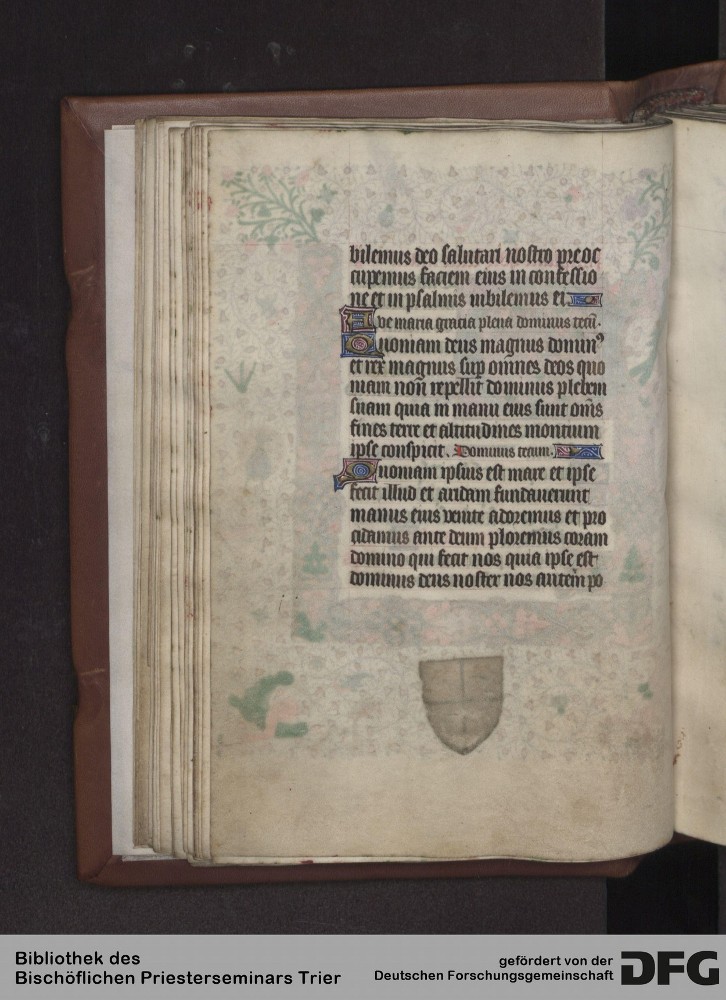 bilemus deo salutari nostro preoc
cupemus faciem eius in confessio
ne et in psalmis iubilemus ei
Ave maria gracia plena dominus tecū.
Quoniam deus magnus domin⁹
et rex magnus sup omnes deos quo
niam non repellit dominus plebem
suam quia in manu eius sunt om̄s
fines terre et altitudines montium
ipse conspicit. Dominus tecum.
Quoniam ipsius est mare et ipse
fecit illud et aridam fundauerunt
manus eius venite adoremus et pro
cidamus ante deum ploremus coram
domino qui fecit nos quia ipse est
dominus deus noster nos autem po
Bibliothek des
Bischöflichen Priesterseminars Trier
gefördert von der
Deutschen Forschungsgemeinschaft
DFG